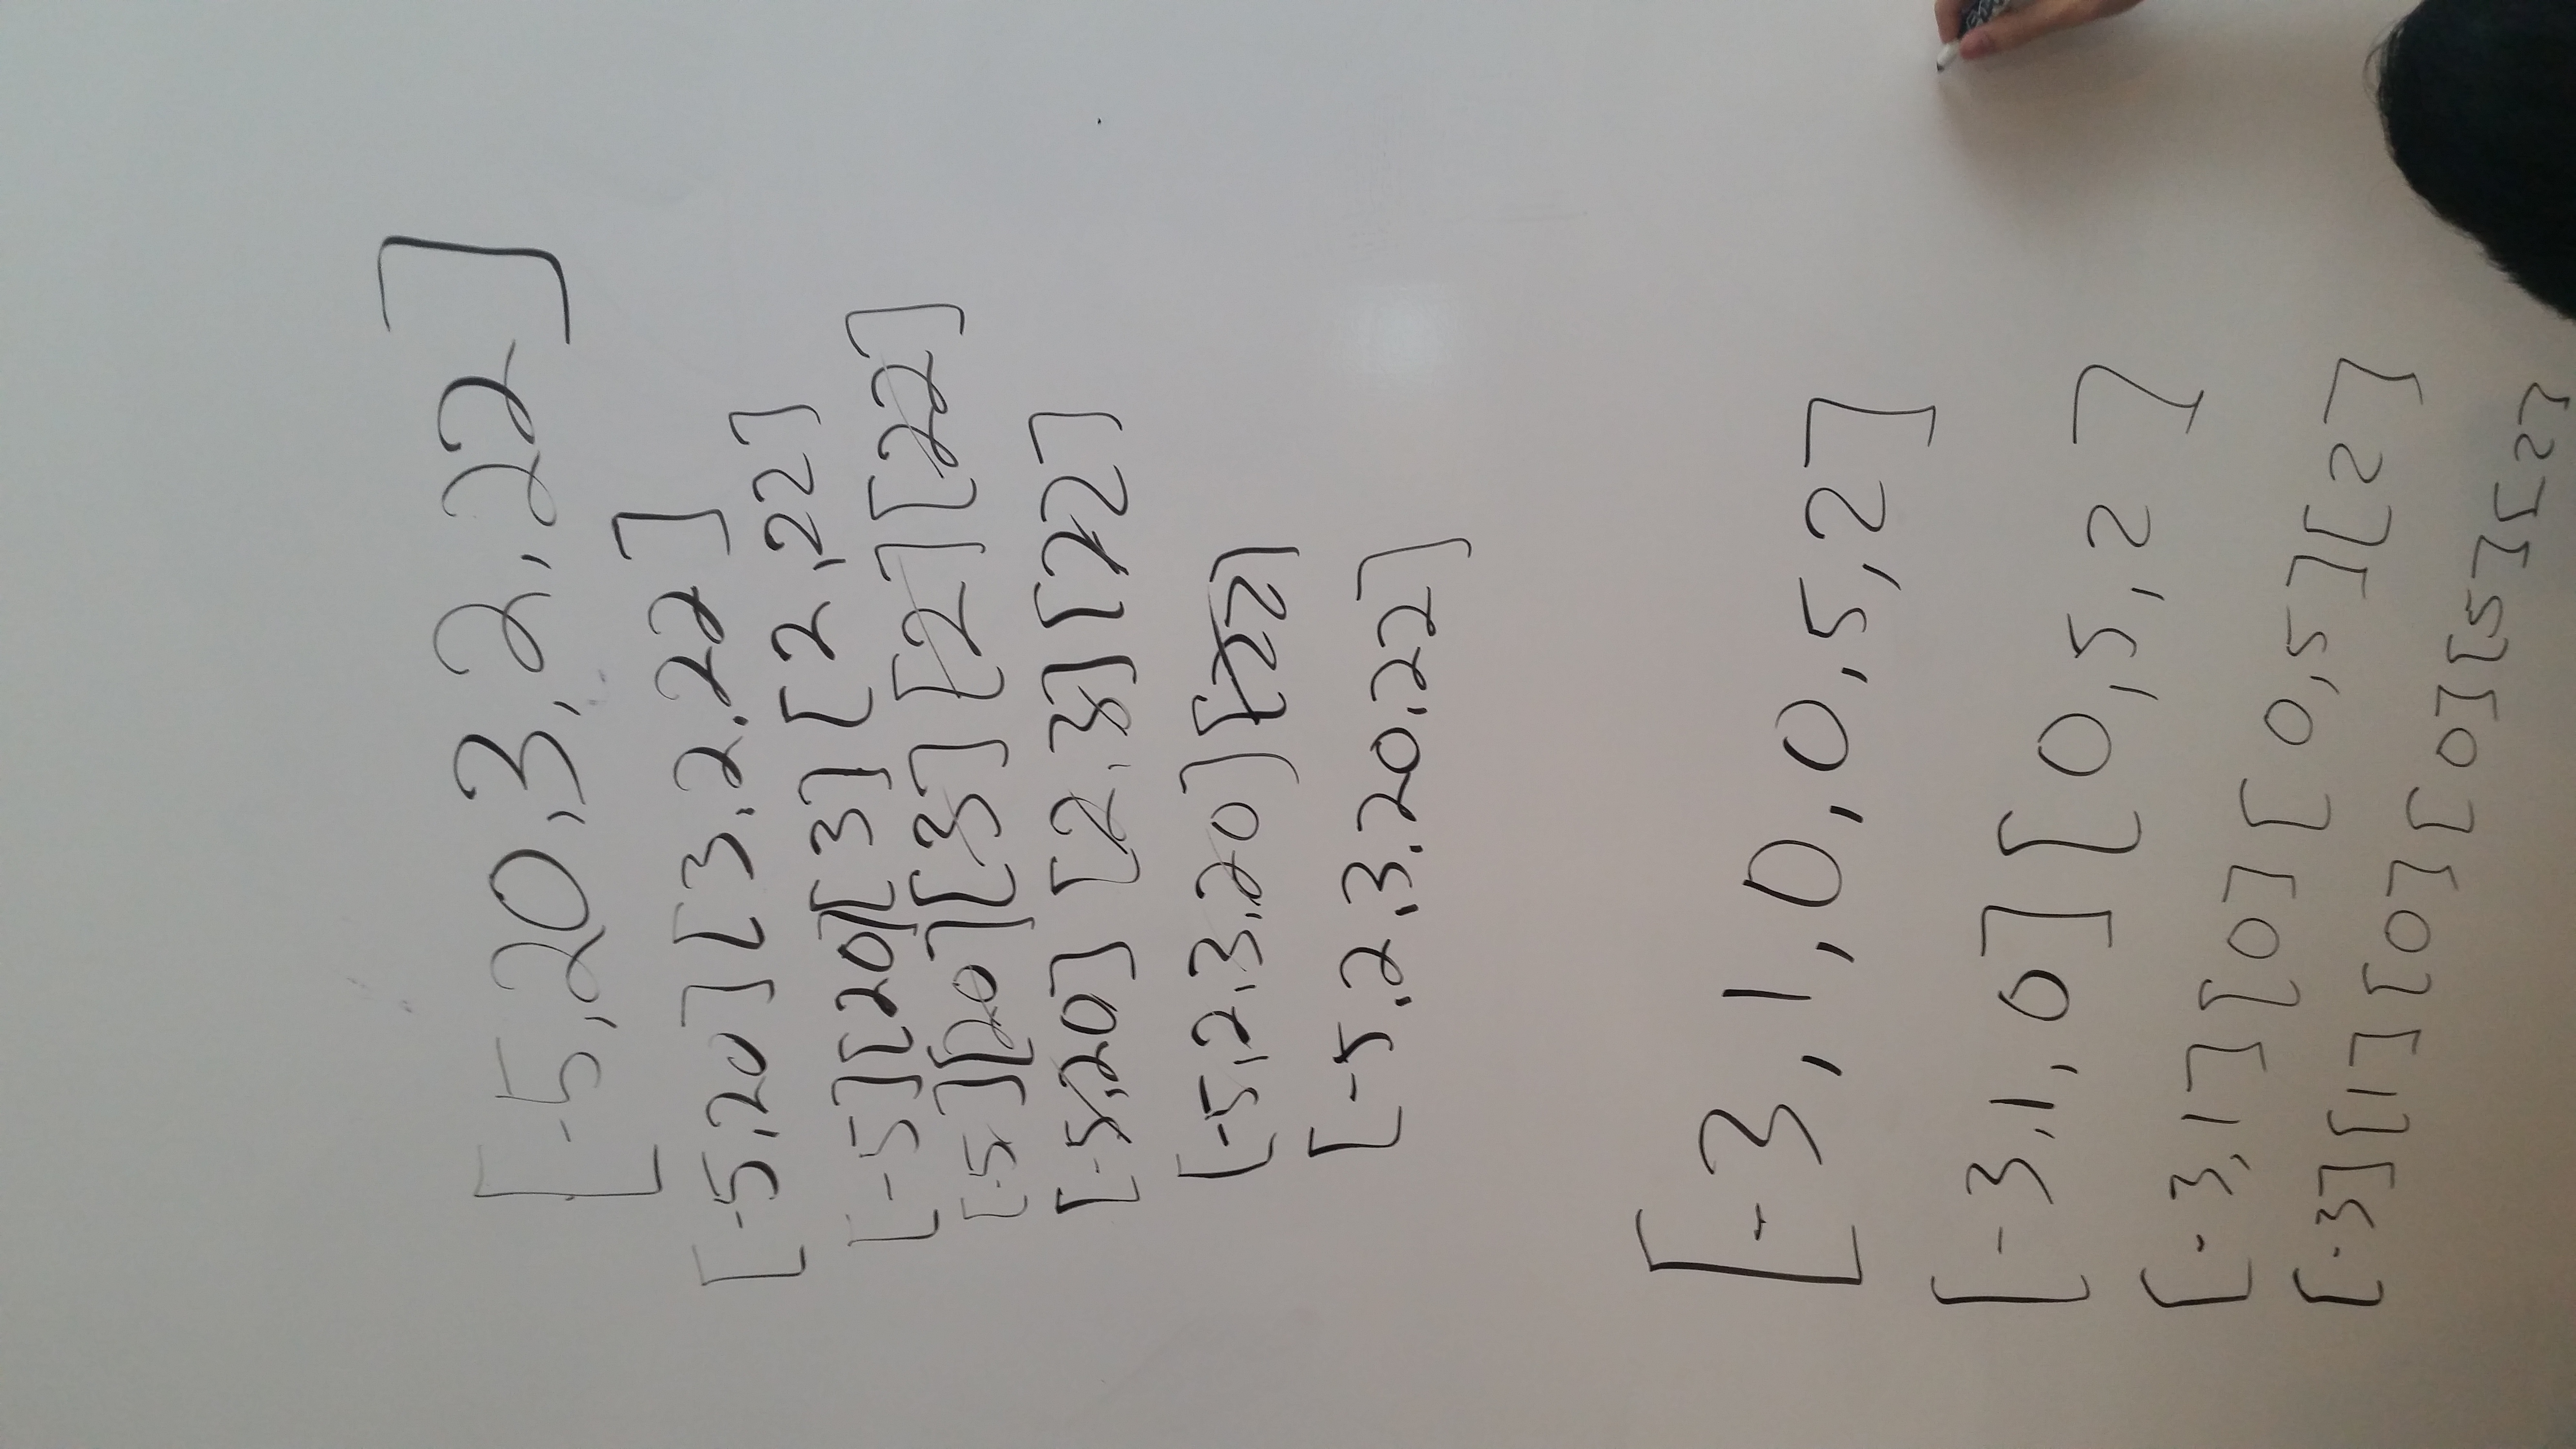 [-5,20,3,2,22]
[-5,20][3,2,22]
[-5][20][3][2,22]
[-5][20][3][2][22]
[-5,20][2,3][22]
[-5,2,3,20][22]
[-5,2,3,20,22]
[-3,1,0,0,5,2]
[-3,1,0][0,5,2]
[-3,1][0][0,5][2]
[-3][1][0][0][5][2]